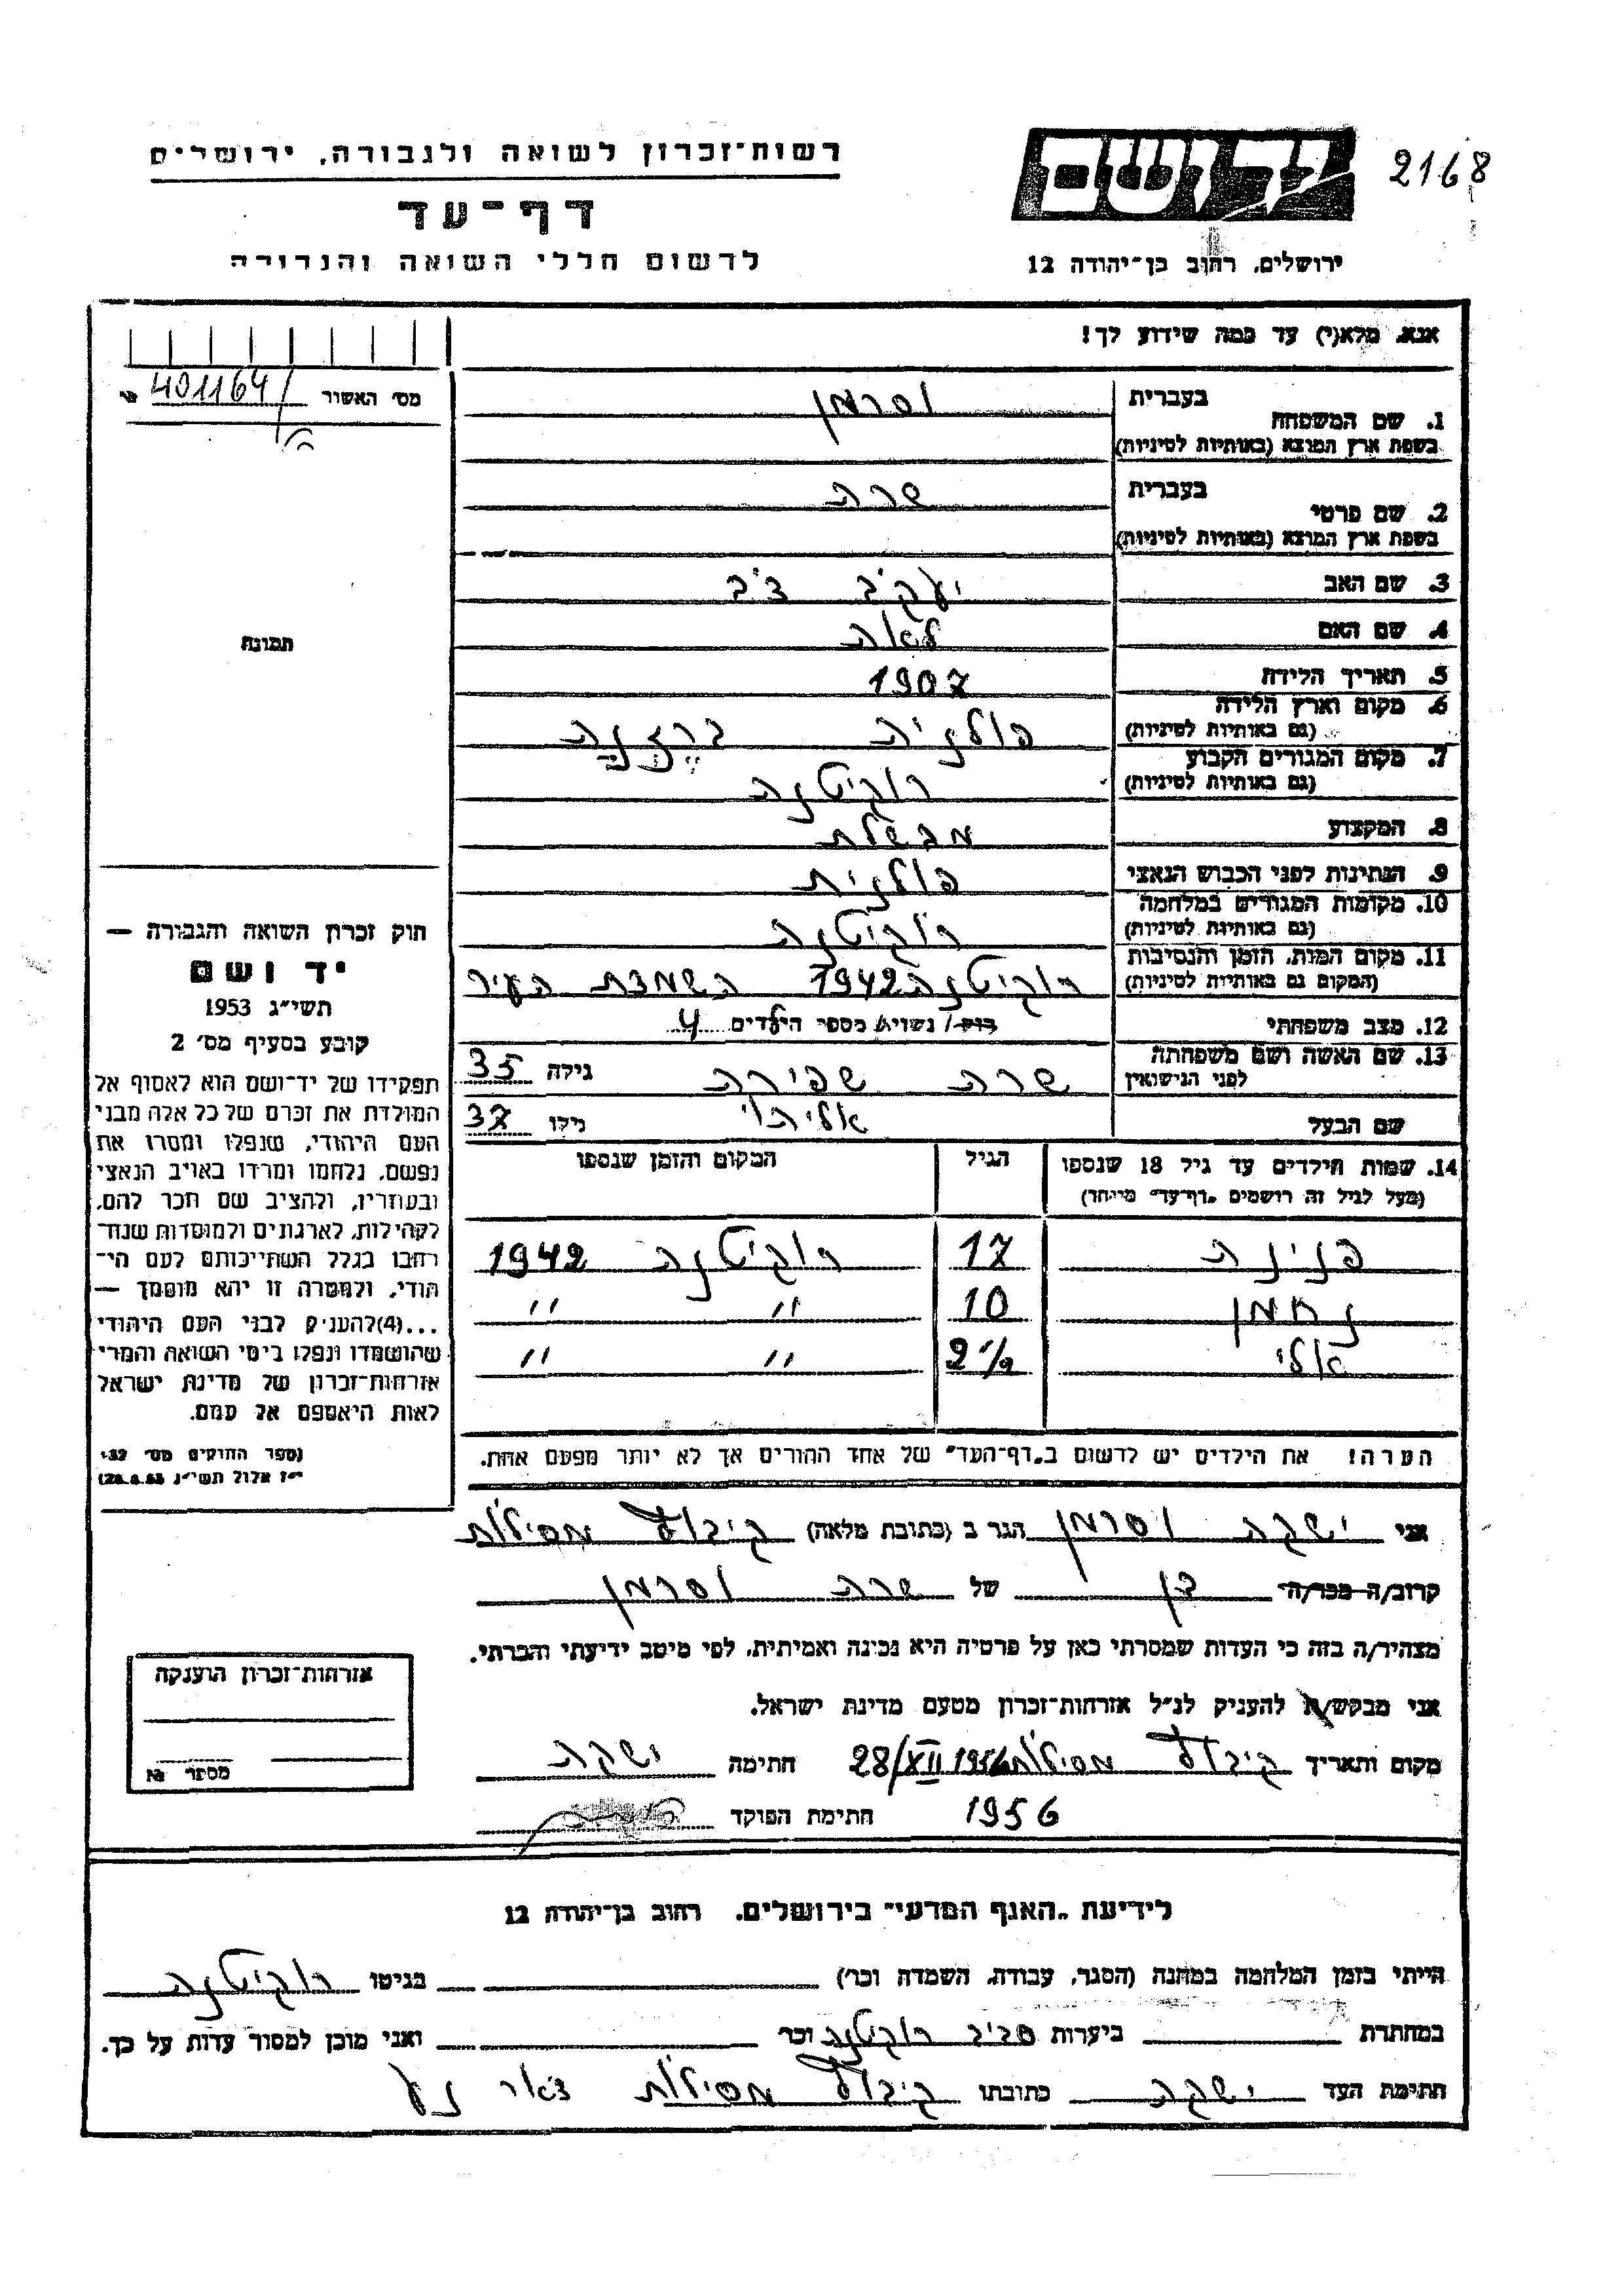 2168
יד ושם
רשות־זכרון לשואה ולגבורה, ירושלים
דף־עד
לרשום חללי השואה והגבורה
ירושלים, רחוב בן־יהודה 12
אנא, מלא(י) עד כמה שידוע לך!
מס׳ האשור 401164
1. שם המשפחה בעברית וסרמן
בשפת ארץ המוצא (באותיות לטיניות)
2. שם פרטי בעברית שרה
בשפת ארץ המוצא (באותיות לטיניות)
3. שם האב יעקב צבי
4. שם האם לאה
5. תאריך הלידה 1907
6. מקום וארץ הלידה פולניה
(גם באותיות לטיניות)
7. מקום המגורים הקבוע רוקיטנה
(גם באותיות לטיניות)
8. המקצוע מבשלת
9. הנתינות לפני הכבוש הנאצי פולנית
10. מקומות המגורים במלחמה רוקיטנה
(גם באותיות לטיניות)
11. מקום המות, הזמן והנסיבות רוקיטנה 1942 השמדת העיר
(המקום גם באותיות לטיניות)
12. מצב משפחתי רוק/ נשוי/ה מספר הילדים 4
13. שם האשה ושם משפחתה שרה שפירה גילה 35
לפני הנישואין
שם הבעל אליהו גילו 37
14. שמות הילדים עד גיל 18 שנספו הגיל המקום והזמן שנספו
(מעל לגיל זה רושמים „דף־עד״ מיוחד)
פנינה 17 רוקיטנה 1942
נחמן 10 ״ ״
אלי 2½ ״ ״
הערה! את הילדים יש לרשום ב„דף־העד״ של אחד ההורים אך לא יותר מפעם אחת.
תמונה
חוק זכרון השואה והגבורה —
יד ושם
תשי״ג 1953
קובע בסעיף מס׳ 2
תפקידו של יד־ושם הוא לאסוף אל
המולדת את זכרם של כל אלה מבני
העם היהודי, שנפלו ומסרו את
נפשם, נלחמו ומרדו באויב הנאצי
ובעוזריו, ולהציב שם וזכר להם,
לקהילות, לארגונים ולמוסדות שנח־
רבו בגלל השתייכותם לעם הי־
הודי, ולמטרה זו יהא מוסמך —
...(4)להעניק לבני העם היהודי
שהושמדו ונפלו בימי השואה והמרי
אזרחות־זכרון של מדינת ישראל
לאות היאספם אל עמם.
(ספר החוקים מס׳ 132
י״ז אלול תשי״ג 28.8.53)
אני ישקה וסרמן הגר ב (כתובת מלאה) קיבוץ מסילות
קרוב/ה מכר/ה בן של שרה וסרמן
מצהיר/ה בזה כי העדות שמסרתי כאן על פרטיה היא נכונה ואמיתית, לפי מיטב ידיעתי והכרתי.
אני מבקש/ת להעניק לנ״ל אזרחות־זכרון מטעם מדינת ישראל.
מקום ותאריך קיבוץ מסילות 28/XII 1956 חתימה ישקה
1956 חתימת הפוקד
אזרחות־זכרון הוענקה
מספר №
לידיעת „האגף המדעי״ בירושלים, רחוב בן־יהודה 12
הייתי בזמן המלחמה במחנה (הסגר, עבודה, השמדה וכו׳) בגיטו רוקיטנה
במחתרת ביערות סביב רוקיטנה וכו׳ ואני מוכן למסור עדות על כך.
חתימת העד ישקה כתובתו קיבוץ מסילות דאר נע